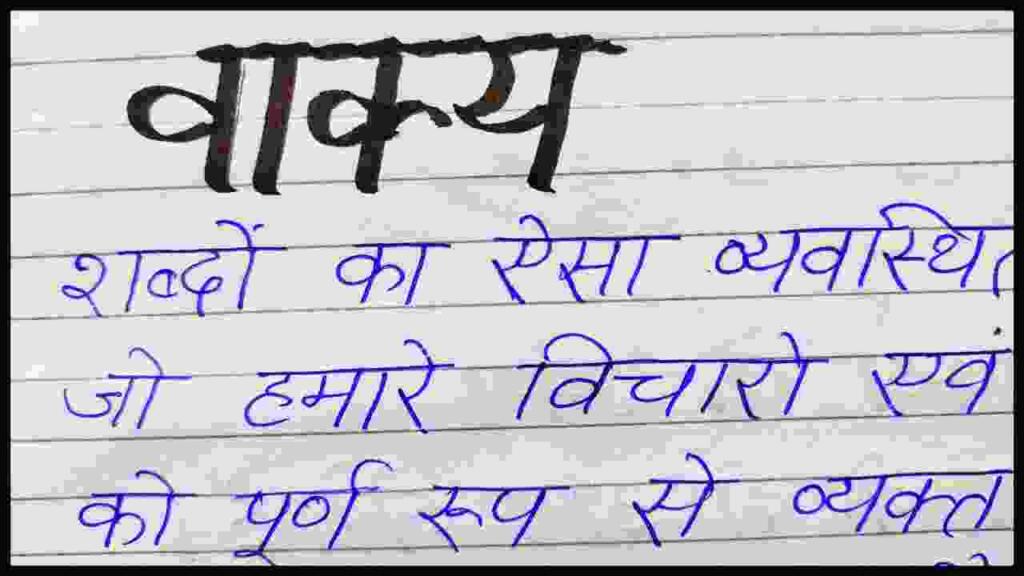 वाक्य
शब्दों का ऐसा व्यवस्थित
जो हमारे विचारो एवं
को पूर्ण रूप से व्यक्त